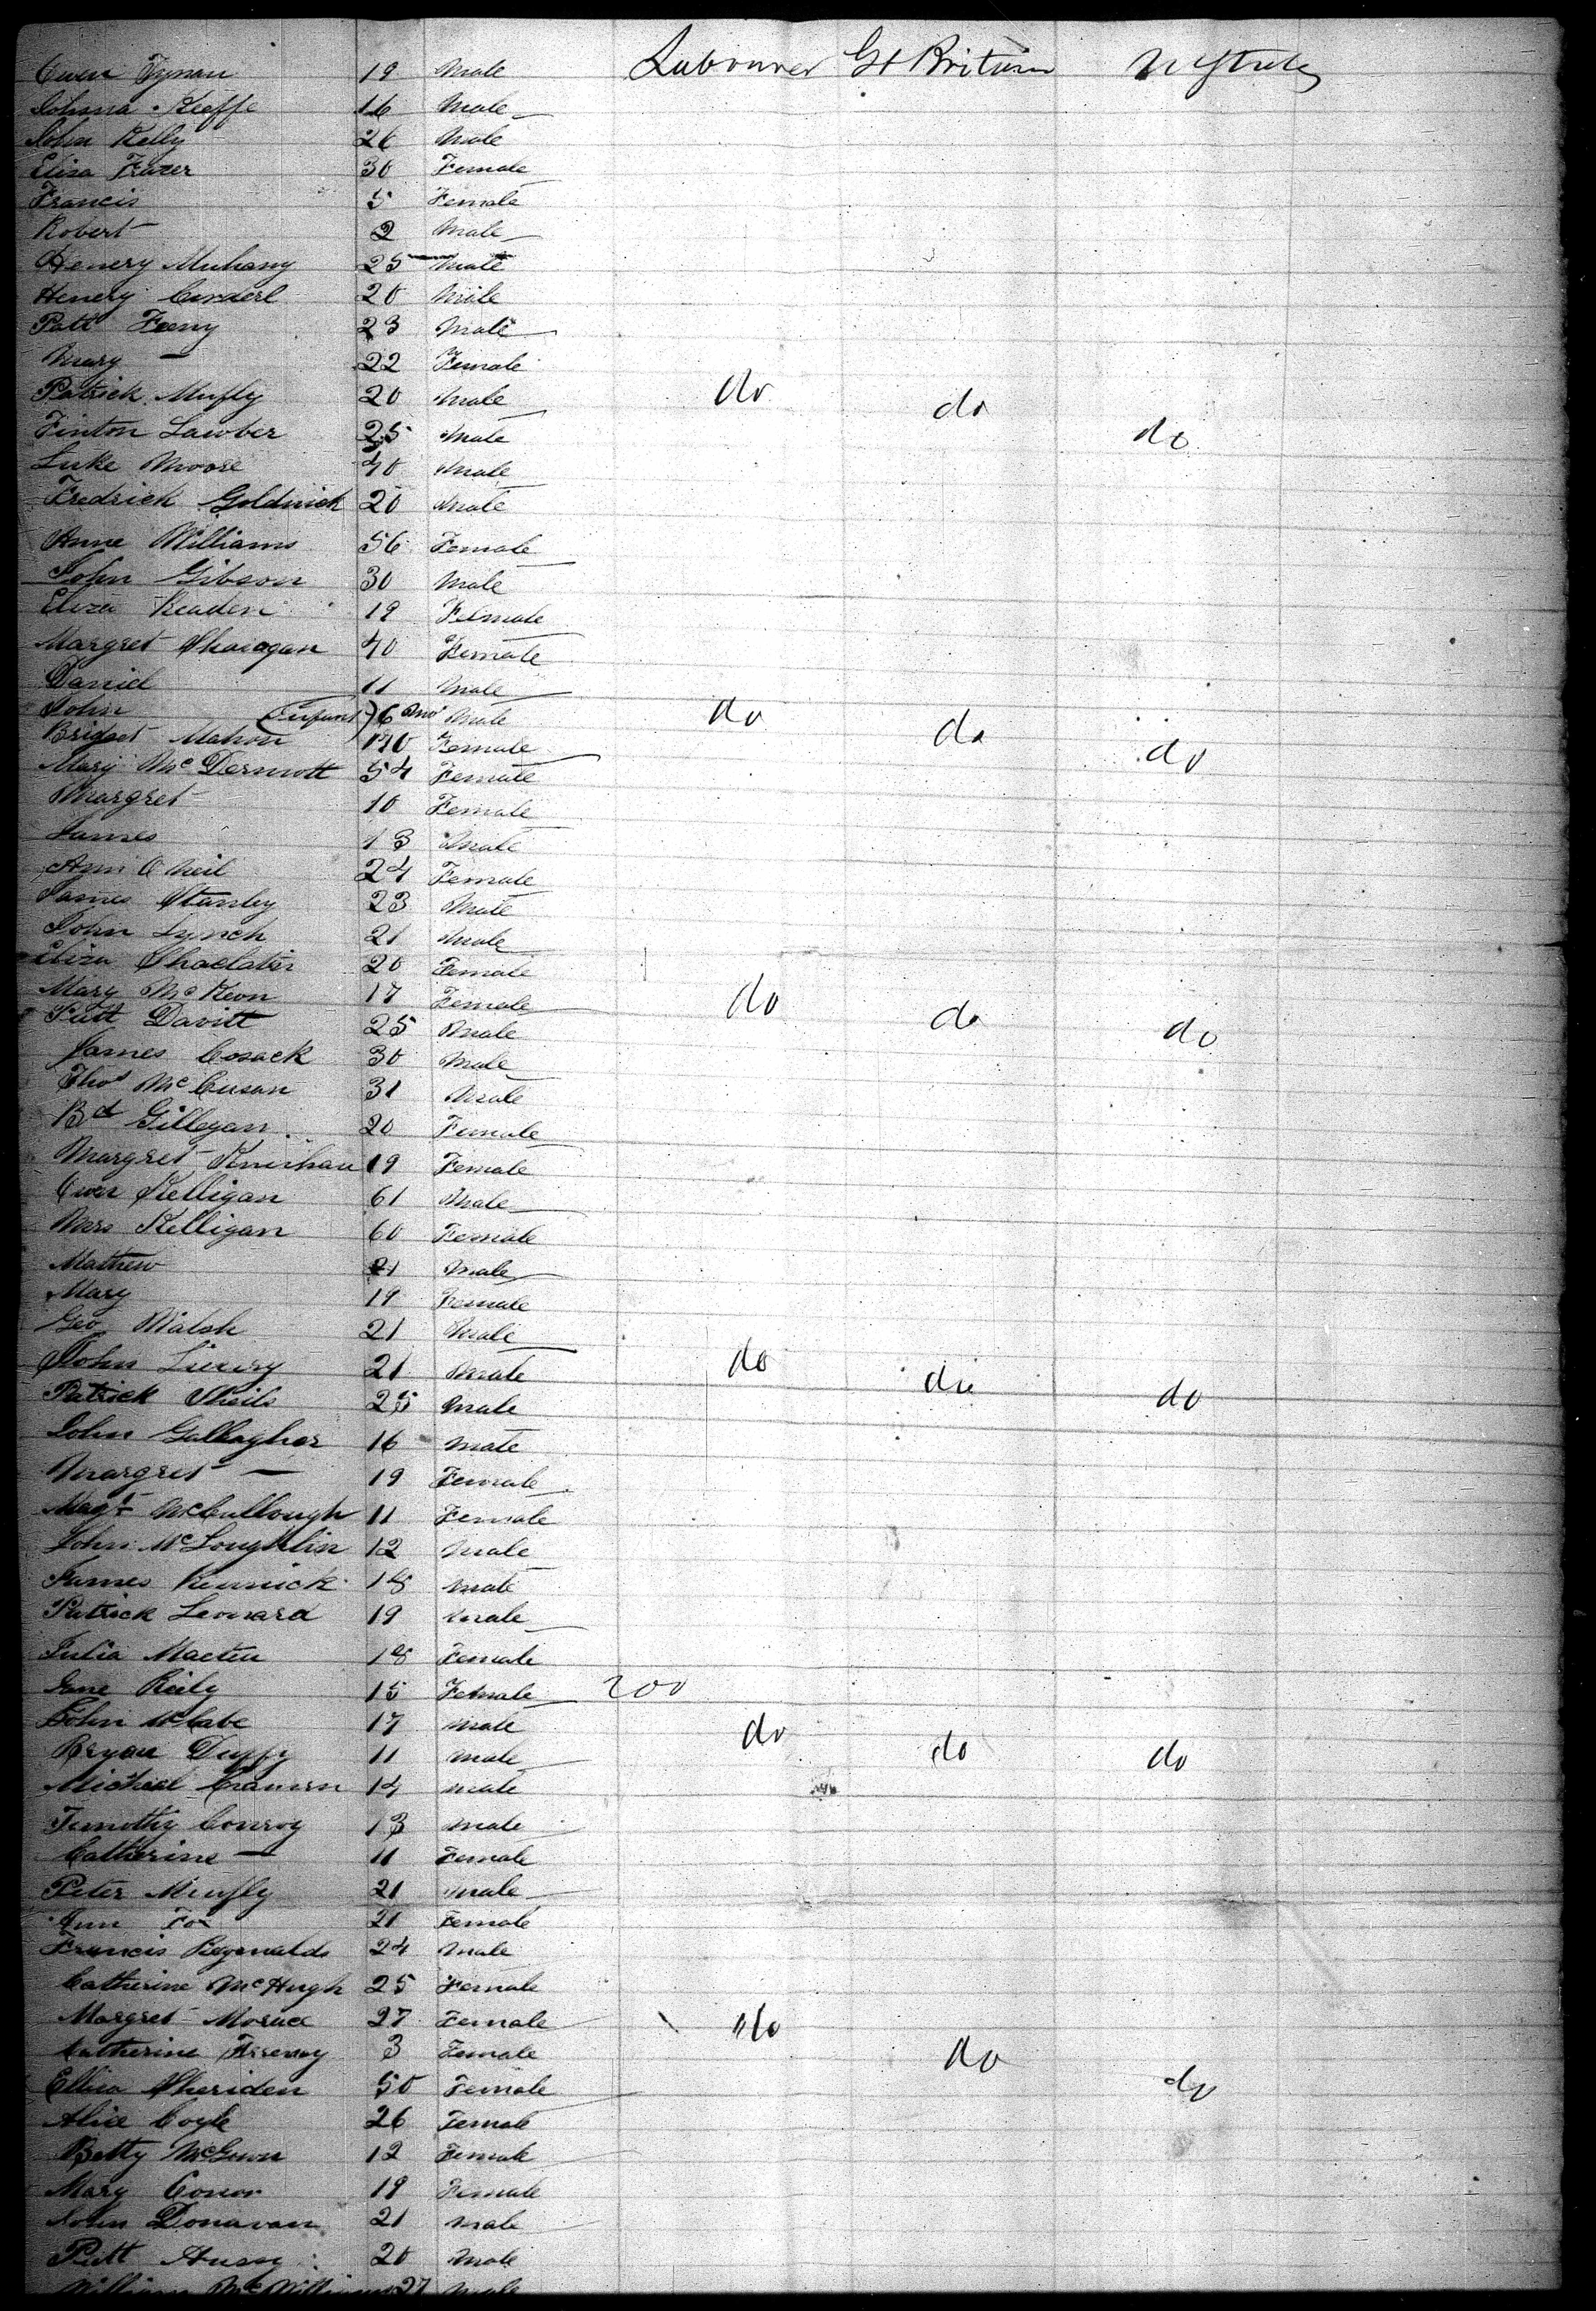 Owen Tynan 19 Male Labourer Gt Britain U States
Johna Keeffe 16 Male
John Kelly 26 Male
Eliza Frazer 30 Female
Francis 5 Female
Robert 2 Male
Henery Muhany 25 Male
Henery 20 Male
Patt Feeny 23 Male
Mary — 22 Female
Patrick Mufly 20 Male do do do
Finton Lawber 25 Male
Luke Moore 40 Male
Fredrick Goldnick 20 Male
Anne Williams 56 Female
John Gibson 30 Male
Eliza Readen 19 Felmale
Margret 40 Female
Daniel 11 Male
John (Infant) 6 mo Male do do do
Bridget Mahon 40 Female
Mary McDermott 54 Female
Margret 10 Female
James 13 Male
Ann O Neil 24 Female
James Stanley 23 Male
John Lynch 21 Male
Eliza 20 Female
Mary McKeon 17 Female do do do
Patt Davitt 25 Male
James Cosack 30 Male
Thos McCusan 31 Male
Bd Gillegan 20 Female
Margret 19 Female
Owen Kelligan 61 Male
Mrs Kelligan 60 Female
Mathew 21 Male
Mary 19 Female
Geo Walsh 21 Male
John 21 Male do do do
Patrick Sheils 25 Male
John Gallagher 16 Male
Margret — 19 Female
Magt McCullough 11 Female
John McLoughlin 12 Male
James Rennick 18 Male
Patrick Leonard 19 Male
Julia 18 Female
Jane Reily 15 Female 200
John McCabe 17 Male do do do
Bryan Duffy 11 Male
Micheal 14 Male
Timothy Conroy 13 Male
Catherine — 11 Female
Peter Mufly 21 Male
Ann Fox 21 Female
Francis Regonalds 24 Male
Catherine McHugh 25 Female
Margret 27 Female do do do
Catherine 3 Female
Ellen Sheriden 50 Female
Alice Coyle 26 Female
Betty McGowan 12 Female
Mary Conor 19 Female
John Donavan 21 Male
Patt Hussy 20 Male
William McWilliams 27 Male